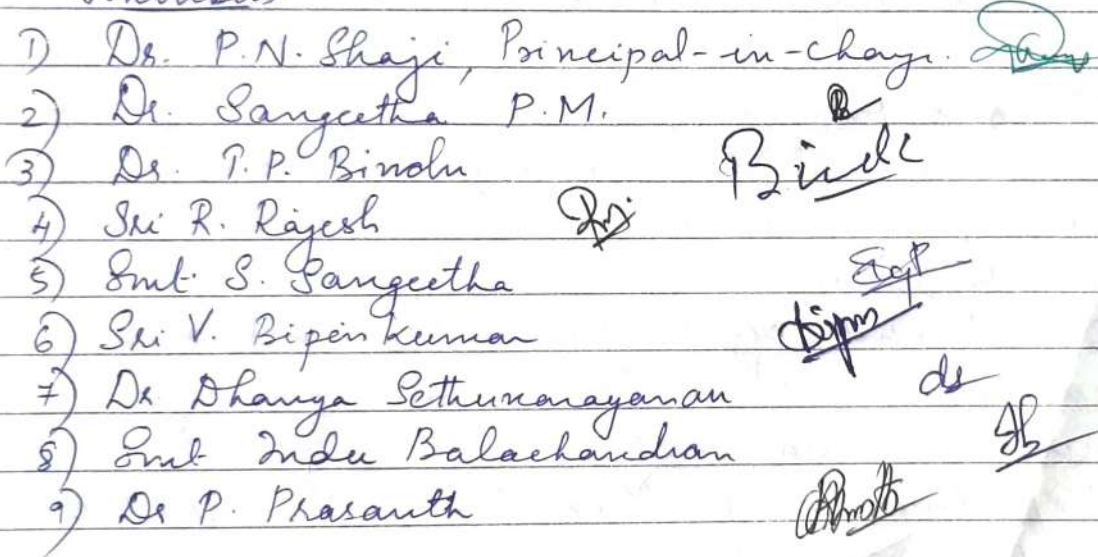 1) Dr. P.N. Shaji, Principal-in-charge.
2) Dr. Sangeetha P.M.
3) Dr. T.P. Bindhu Bindu
4) Sri R. Rajesh
5) Smt. S. Sangeetha
6) Sri V. Bipin kumar
7) Dr Dhanya Sethunarayanan ds
8) Smt Indu Balachandran
9) Dr P. Prasanth